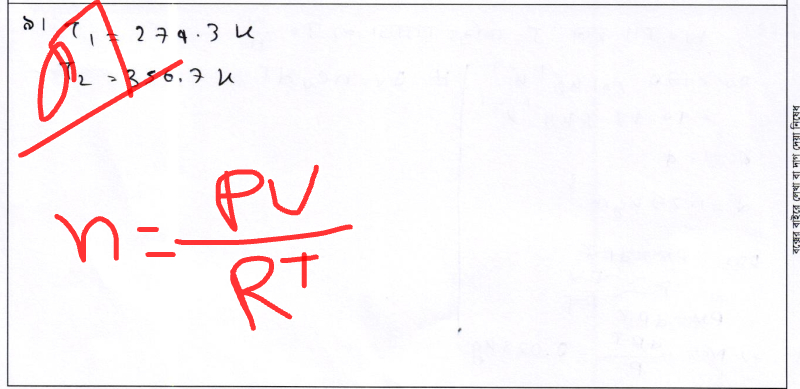 ৯।
T₁ = 274.3 K
T₂ =
n = PV / RT
বক্সের বাইরে লেখা বা দাগ দেয়া নিষেধ